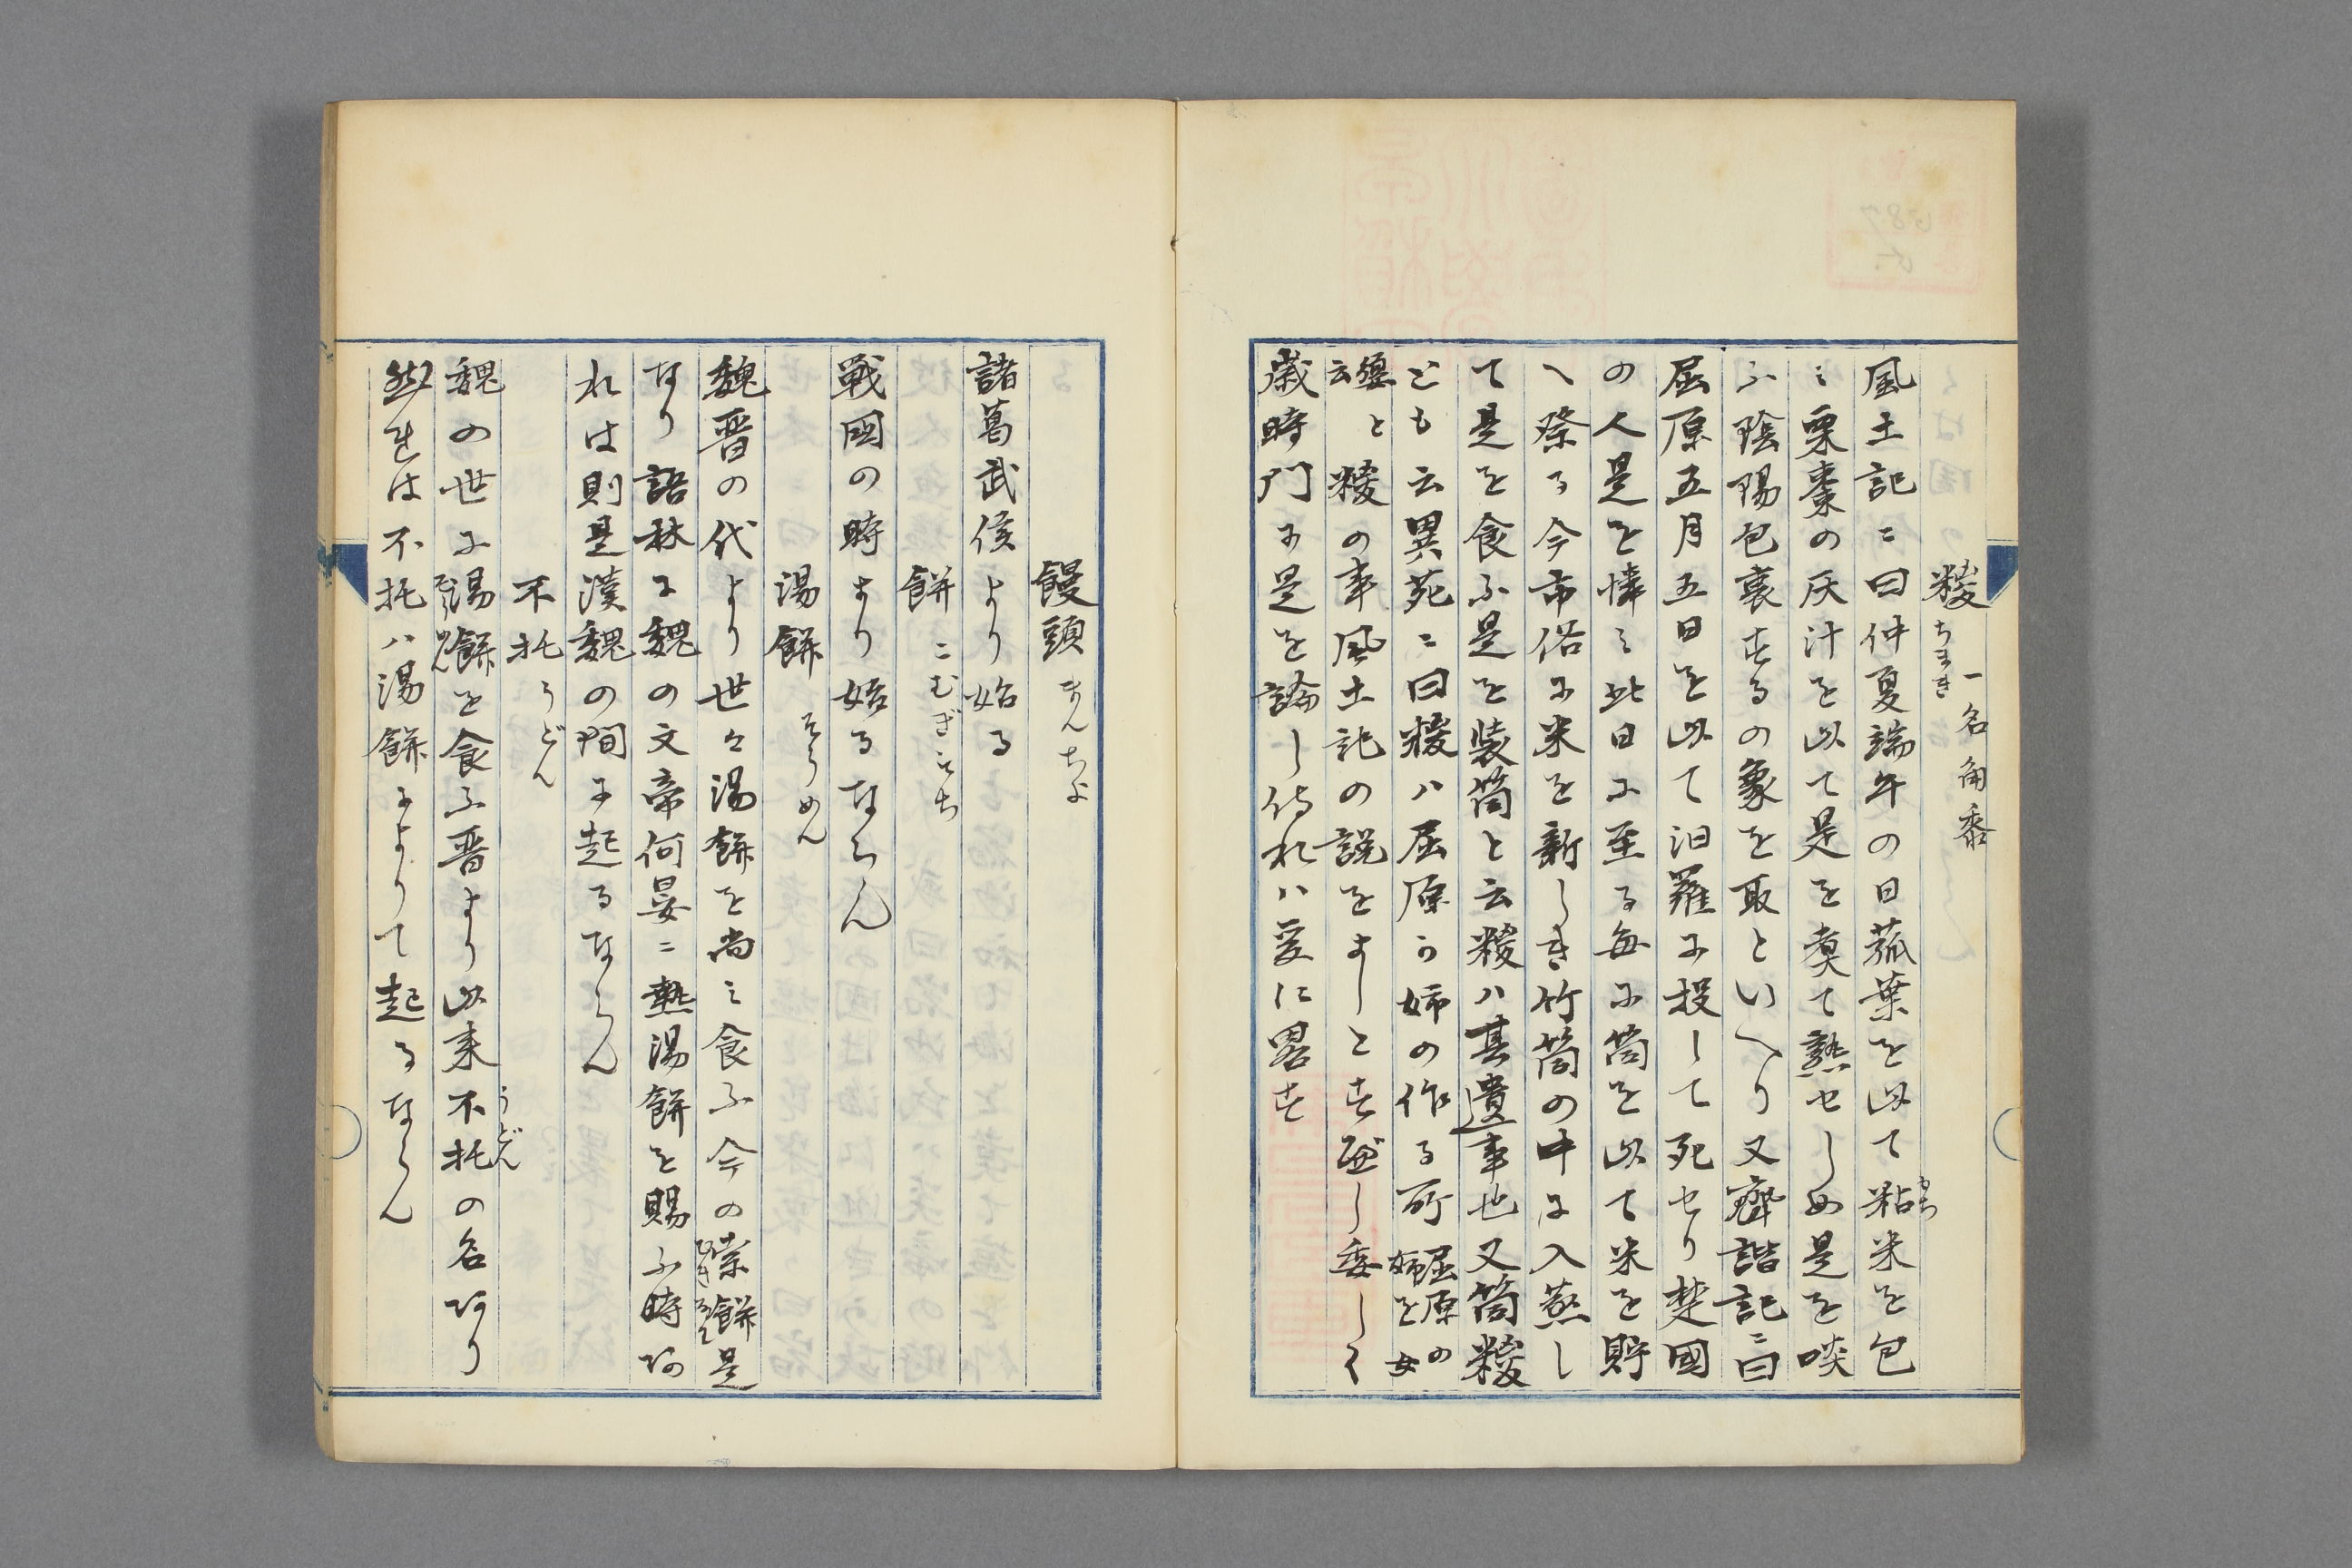 糉 ちまき 一名角黍
風土記ニ曰仲夏端午の日菰葉を以て粘米を包
ミ栗棗の灰汁を以て是を煑て熟セしめ是を啖
ふ陰陽包裹するの象を取といへり又齊諧記ニ曰
屈原五月五日を以て汨羅に投して死セり楚國
の人是を憐ミ此日に至る毎に筒を以て米を貯
へ祭る今市俗に米を新しき竹筒の中に入蒸し
て是を食ふ是を装筒と云糉ハ其遺事也又筒糉
とも云異苑ニ曰糉ハ屈原の姉の作る所 屈原の姉を女
と云 糉の事風土記の説をよしとす歴し委しく
歳時門に是を論し侍れハ爰に畧す
饅頭 まんちよ
諸葛武侯より始る
餅 こむぎもち
戰國の時より始るならん
湯餅 そうめん
魏晋の代より世々湯餅を尚ミ食ふ今の索餅是
なり語林に魏の文帝何晏ニ熱湯餅を賜ふ時あ
れは則是漢魏の間に起るならん
不托 うどん
魏の世に湯餅を食ふ晋より以来不托の名あり
然れは不托ハ湯餅によりて起るならん